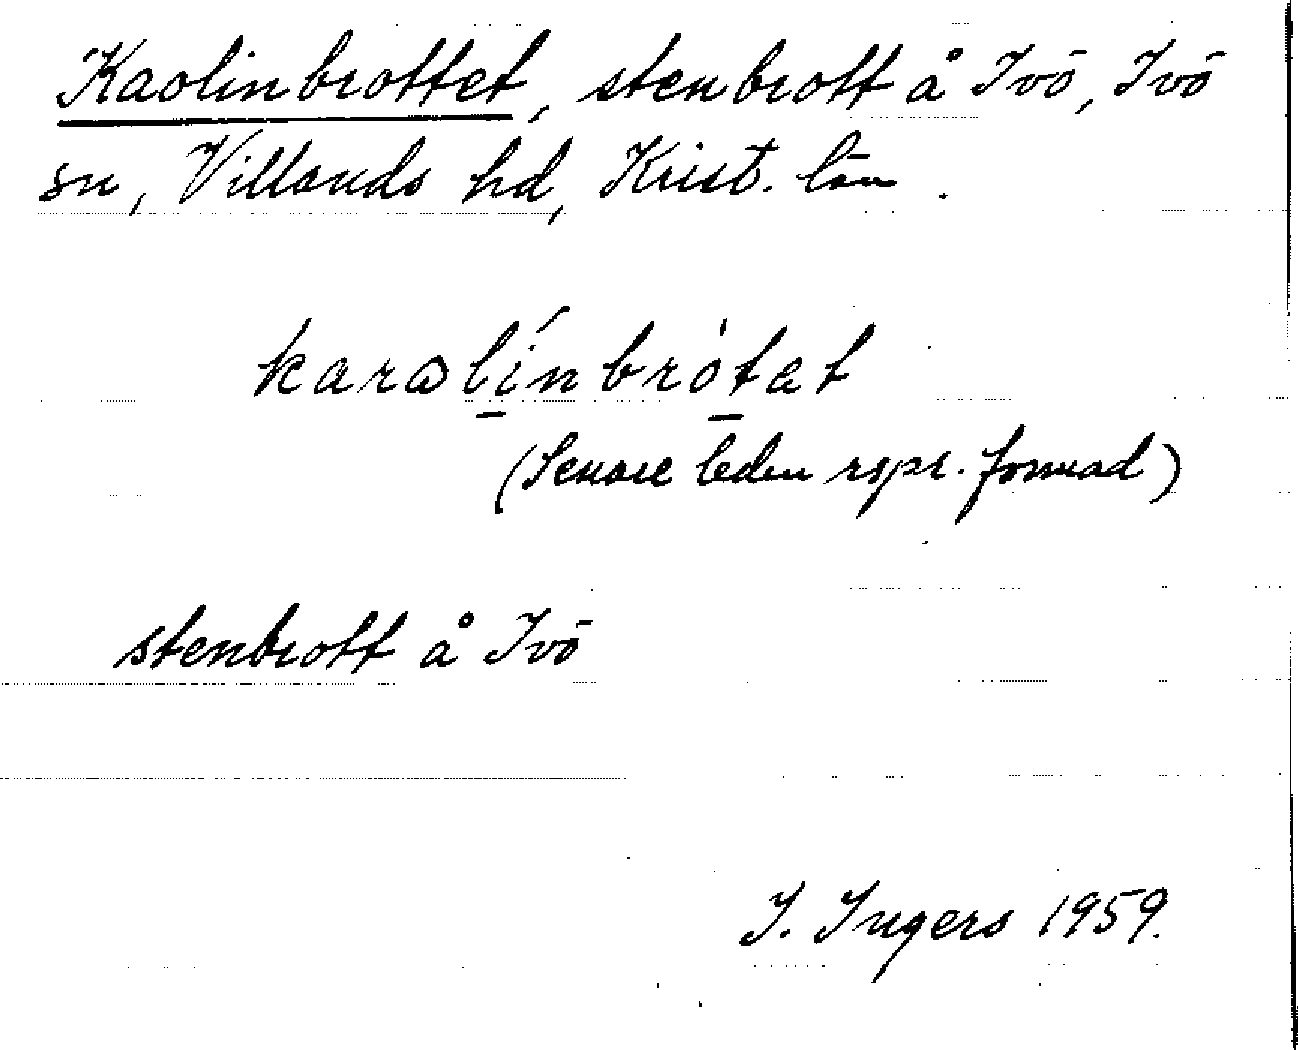 Kaolinbrottet, stenbrott å Ivö, Ivö
sn, Villands hd, Krist. län.
karalínbròtat
(Senare leden rspr. formad)
stenbrott å Ivö
I. Ingers 1959.